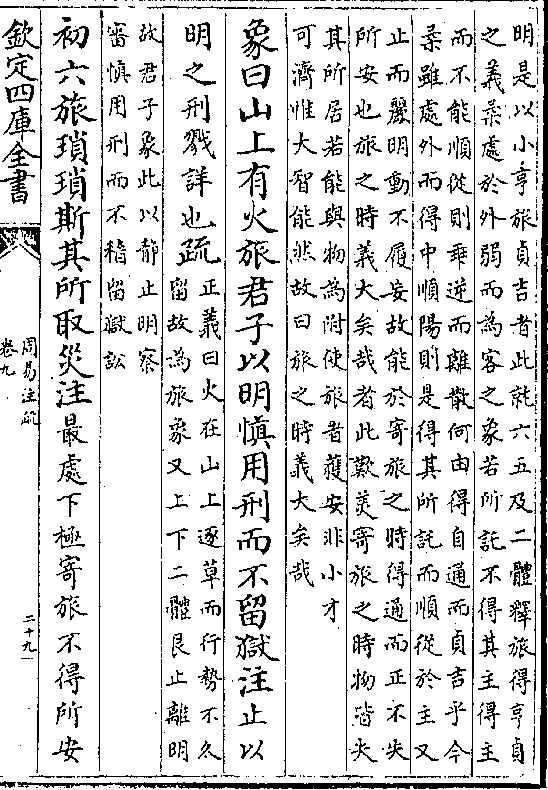 明是以小亨旅貞吉者此就六五及二體釋旅得亨貞
之義柔處於外弱而為客之象若所託不得其主得主
而不能順從則乖逆而離散何由得自通而貞吉乎今
柔雖處外而得中順陽則是得其所託而順從於主又
止而麗明動不履妄故能於寄旅之時得通而正不失
所安也旅之時義大矣哉者此歎美寄旅之時物皆失
其所居若能與物為附使旅者獲安非小才
可濟惟大智能然故曰旅之時義大矣哉
象曰山上有火旅君子以明慎用刑而不留獄注止以
明之刑戮詳也疏
正義曰火在山上逐草而行勢不久
留故為旅象又上下二體艮止離明
故君子象此以靜止明察
審慎用刑而不稽留獄訟
初六旅瑣瑣斯其所取災注最處下極寄旅不得所安
欽定四庫全書
周易注疏
卷九
二十九